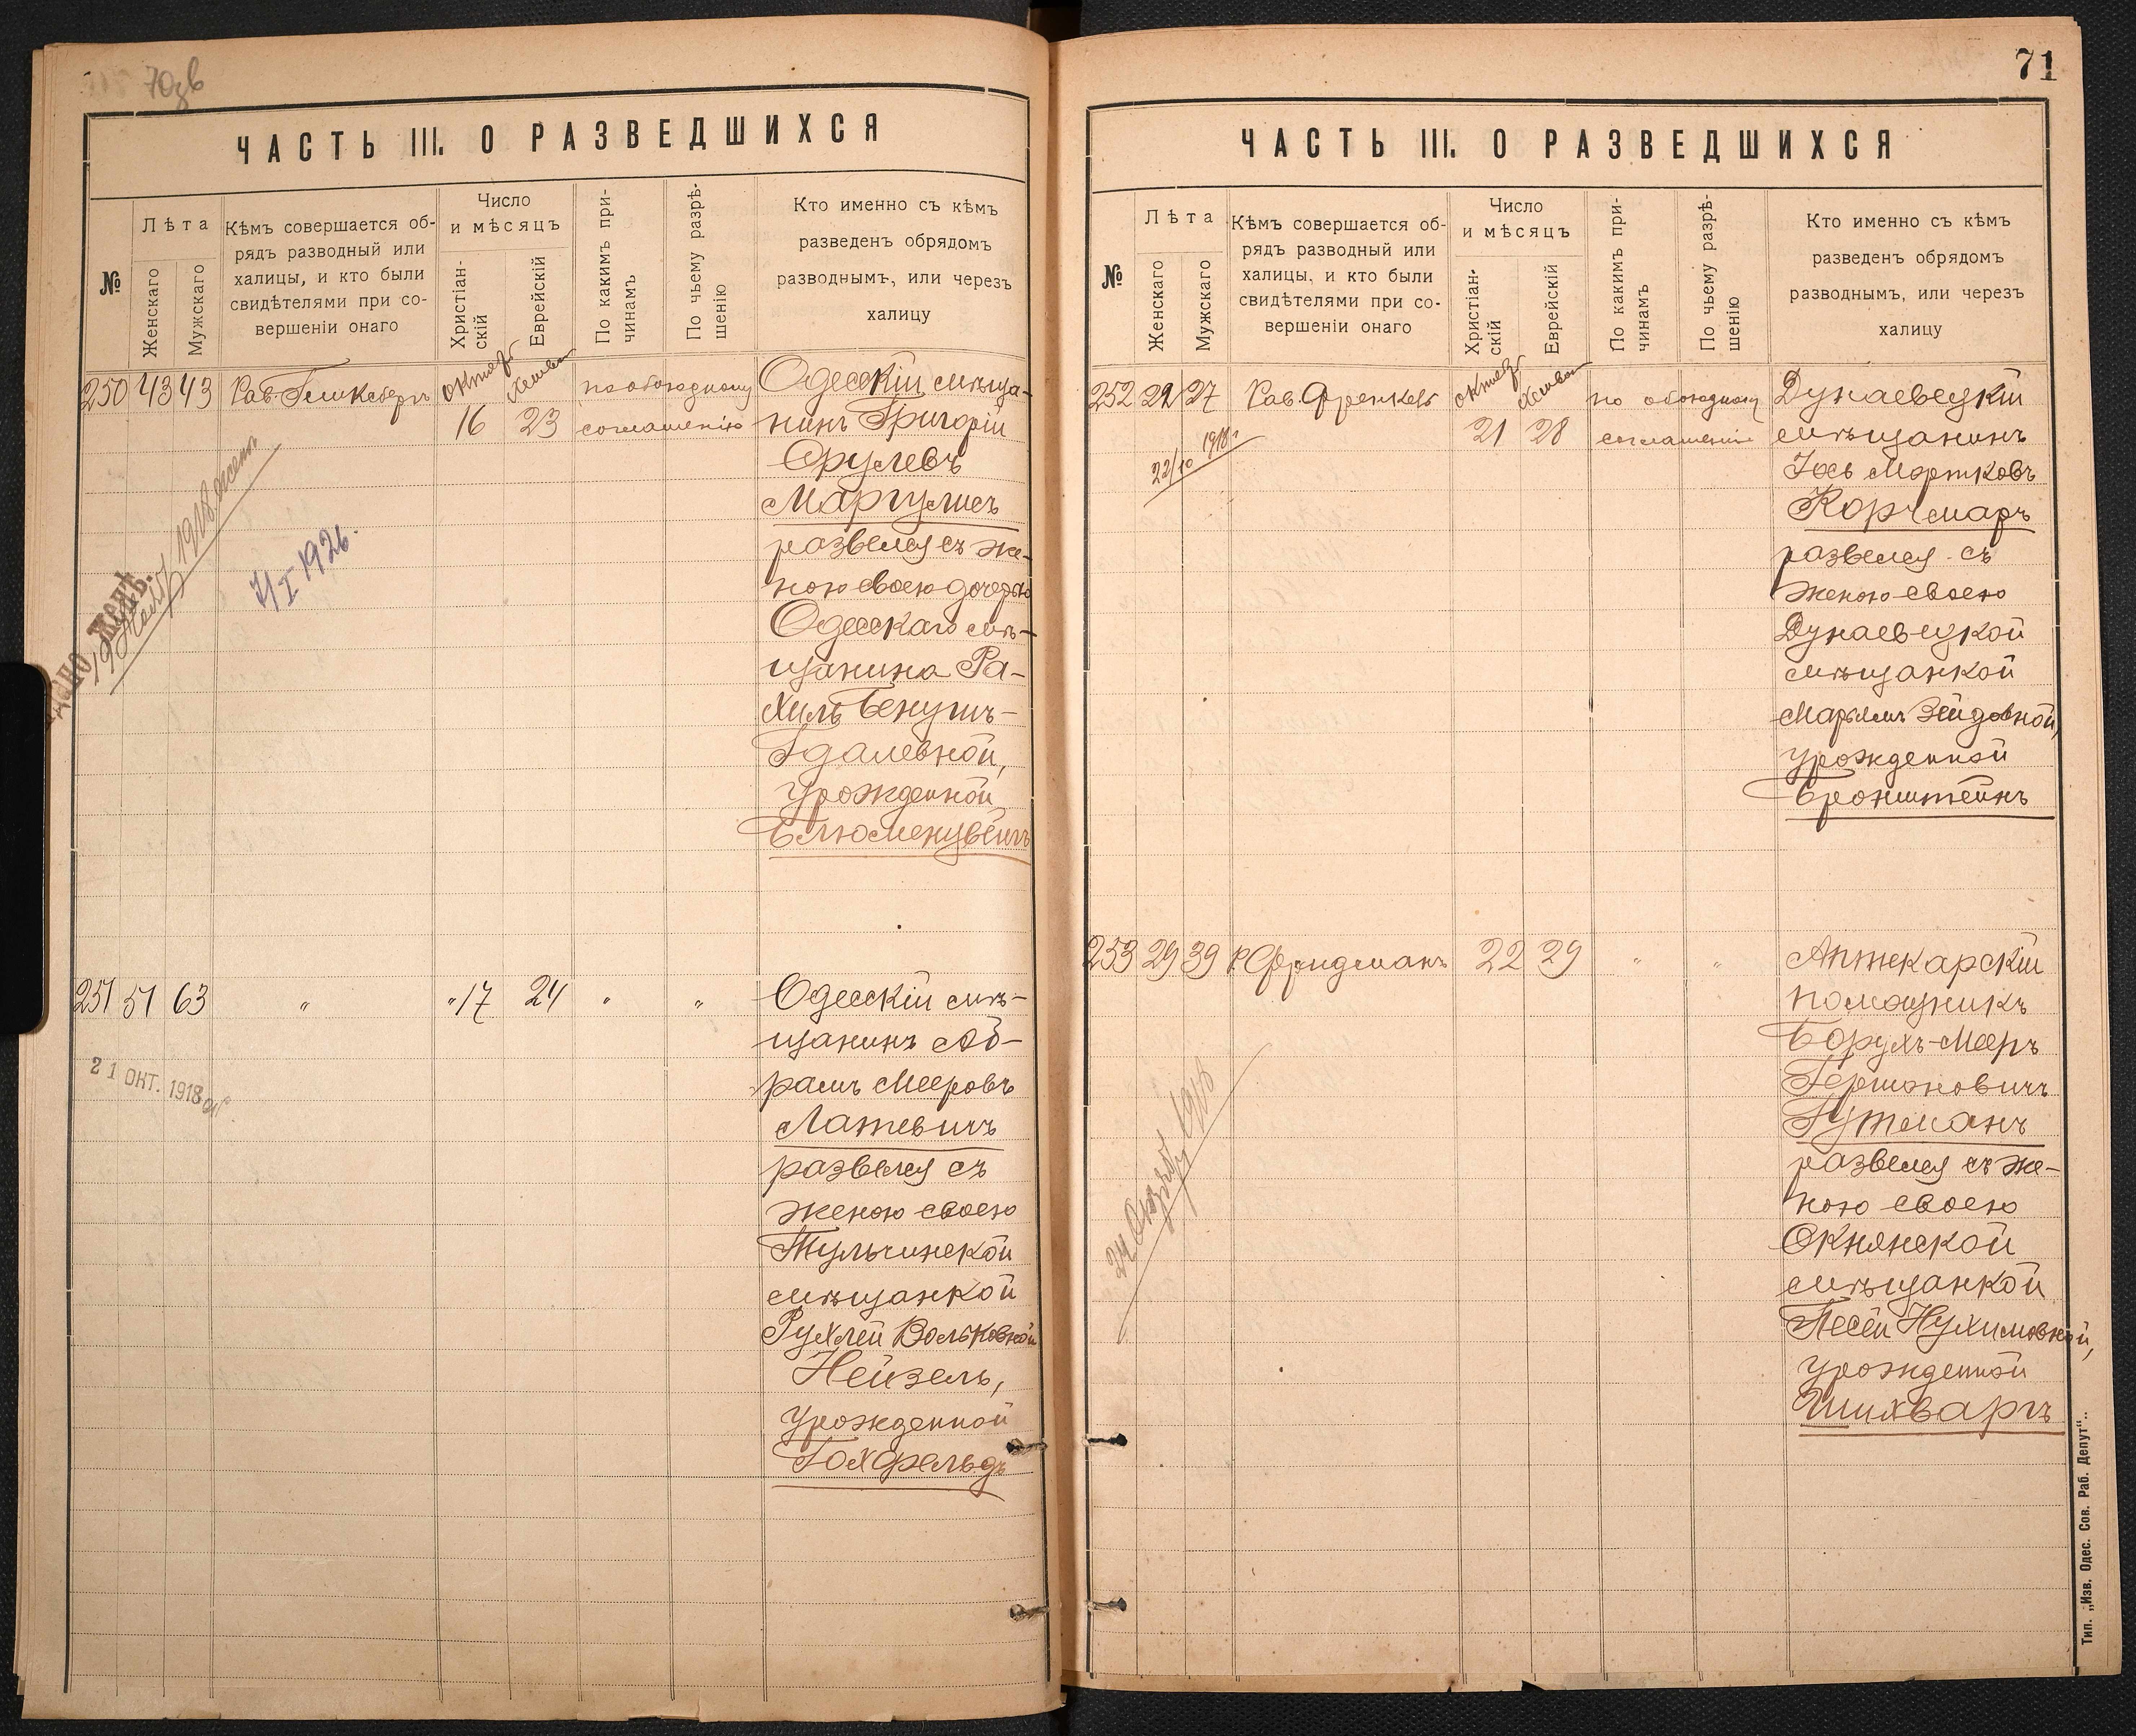 70зв
ЧАСТЬ III. О РАЗВЕДШИХСЯ
№
Лѣта
Женскаго
Мужскаго
Кѣмъ совершается об-
рядъ разводный или
халицы, и кто были
свидѣтелями при со-
вершеніи онаго
Число
и мѣсяцъ
Христіан-
скій
Еврейскій
По какимъ при-
чинамъ
По чьему разрѣ-
шенію
Кто именно съ кѣмъ
разведенъ обрядомъ
разводнымъ, или черезъ
халицу
250 43 43 Рав. октяб. Хешван по обоюдному
16 23 соглашенію
Одесскій мѣща-
нинъ Григорій
Срулевъ
Маргулисъ
развелся съ же-
ною своею дочерью
Одесскаго мѣ-
щанина Ра-
хилъ Бенумъ-
Гдалевной,
урожденной
1918
жен.
4 I 1926.
251 51 63 " " 17 24 " "
21 ОКТ. 1918
Одесскій мѣ-
щанинъ Аб-
рамъ Мееровъ
Латевичъ
развелся съ
женою своею
Тульчинской
мѣщанкой
Рухлей Вольковной
Нейзель,
урожденной
Гохфельдъ
71
ЧАСТЬ III. О РАЗВЕДШИХСЯ
№
Лѣта
Женскаго
Мужскаго
Кѣмъ совершается об-
рядъ разводный или
халицы, и кто были
свидѣтелями при со-
вершеніи онаго
Число
и мѣсяцъ
Христіан-
скій
Еврейскій
По какимъ при-
чинамъ
По чьему разрѣ-
шенію
Кто именно съ кѣмъ
разведенъ обрядомъ
разводнымъ, или черезъ
халицу
252 22 27 Рав. Френкель октяб. Хешван по обоюдному
21 28 соглашенію
22/10 1918 г
Дунаевецкій
мѣщанинъ
Іось Мортковъ
Корчмаръ
развелся съ
женою своею
Дунаевецкой
мѣщанкой
Марьямъ Зейдовной,
урожденной
Бронштейнъ
253 29 39 Р. Фридманъ 22 29 " "
24 Октяб 1918
Аптекарскій
помощникъ
Борухъ-Мееръ
Гершоновичъ
Гутманъ
развелся съ же-
ною своею
Окнянской
мѣщанкой
Песей Нухимовной,
урожденной
Шихваргъ
Тип. „Изв. Одес. Сов. Раб. Депут"..